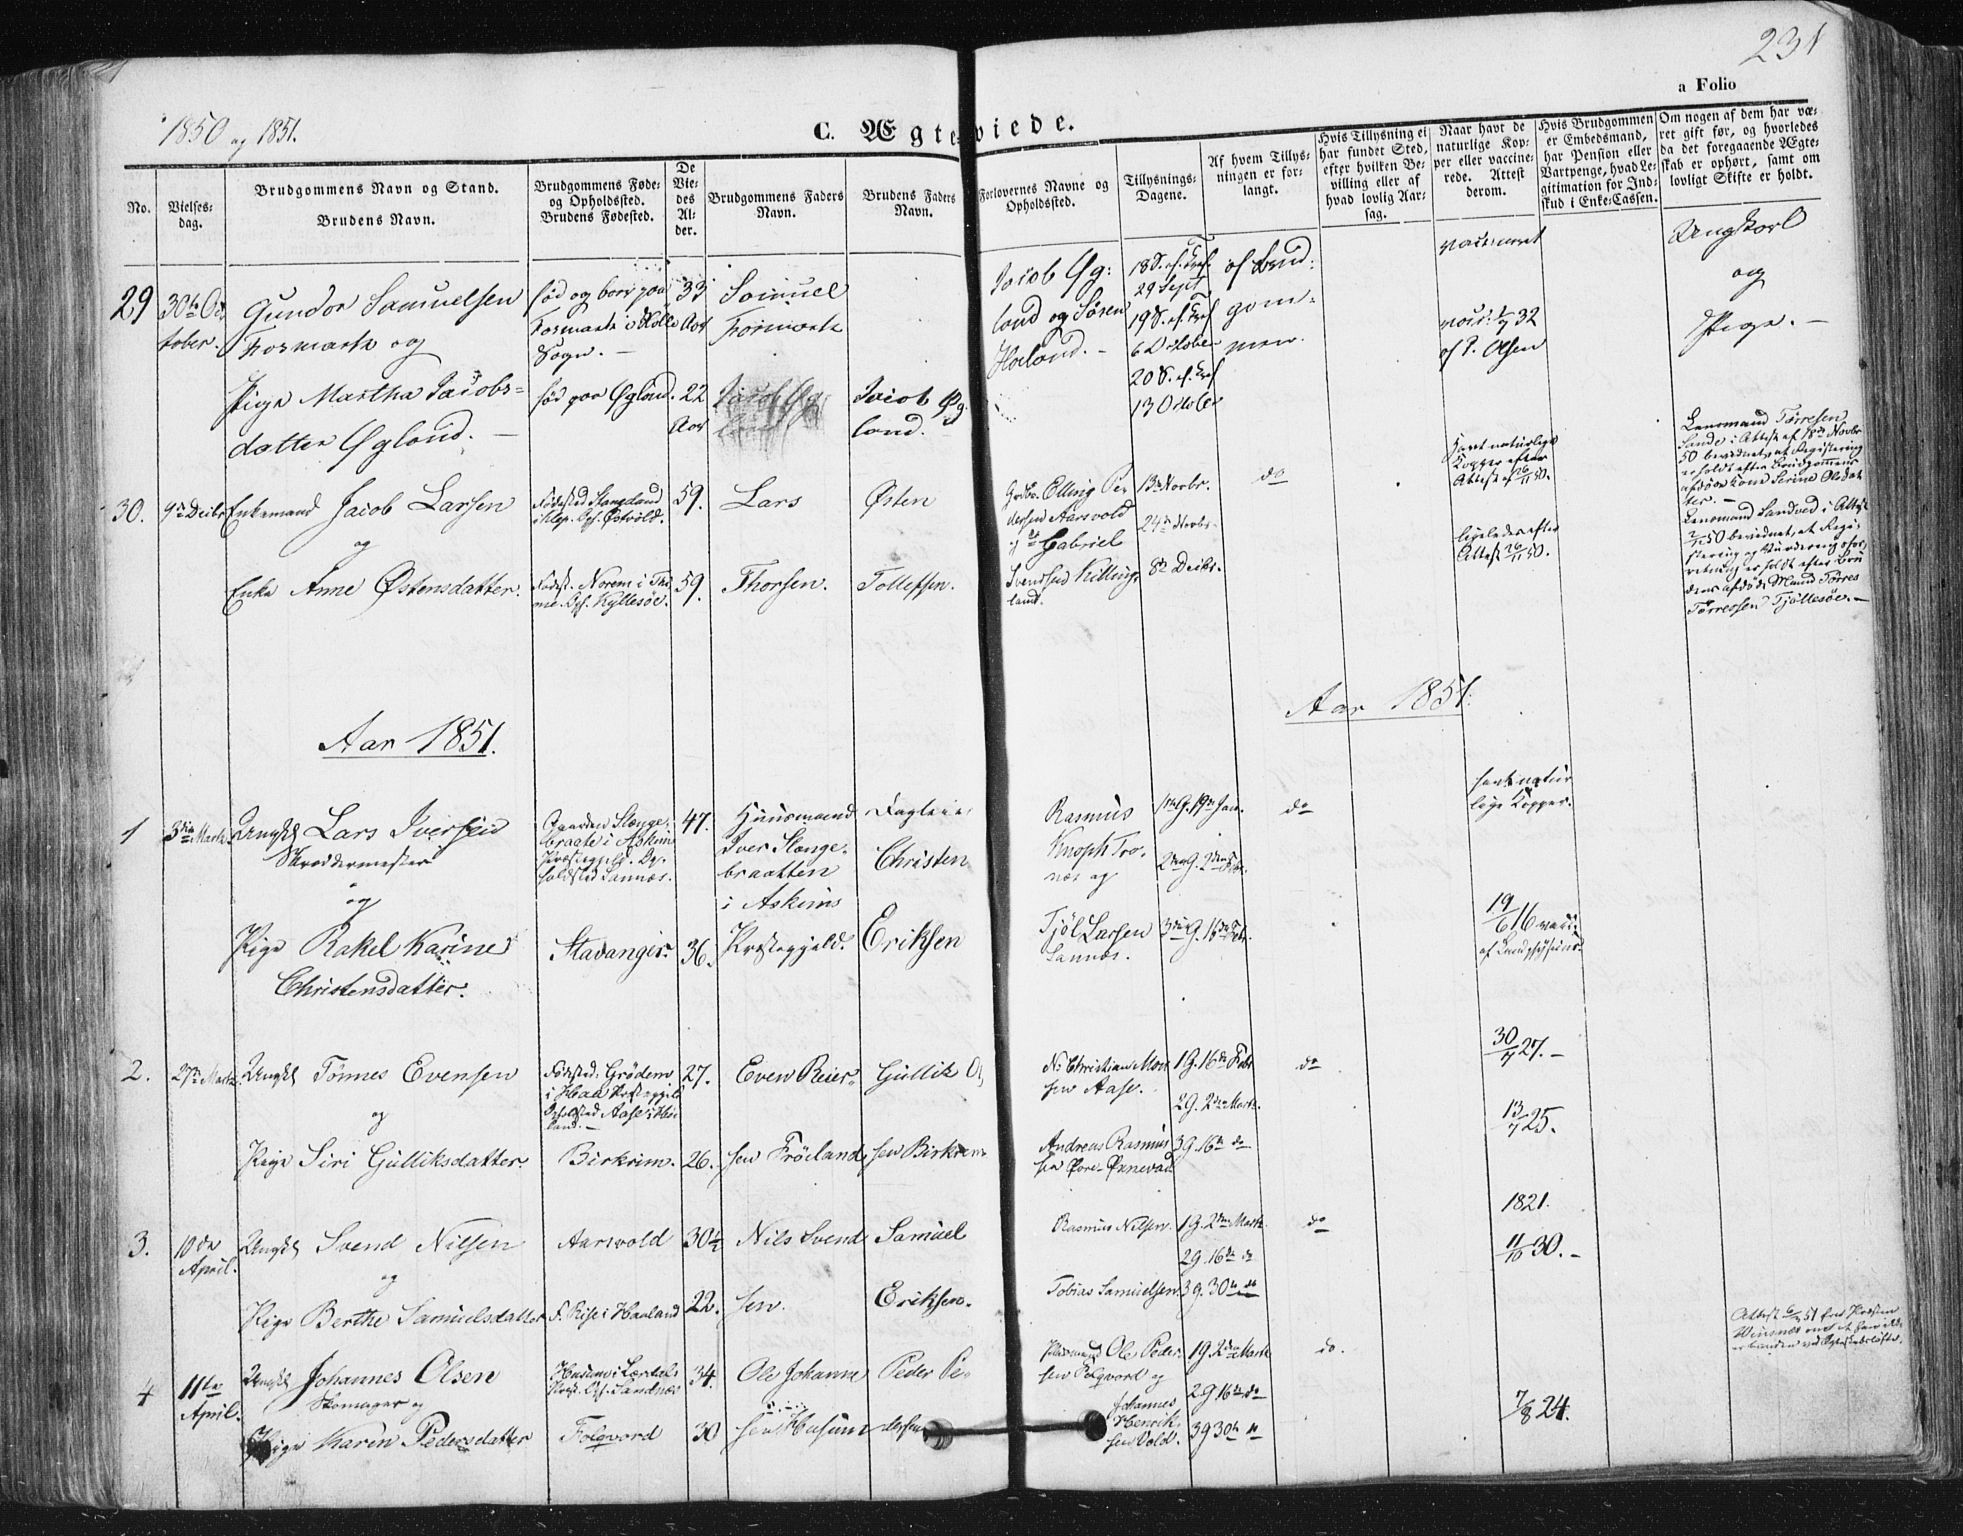 231
a Folio
1850 og 1851.
C. Ægteviede.
No.
Vielses-
dag.
Brudgommens Navn og Stand.
Brudens Navn.
Brudgommens Føde-
og Opholdssted.
Brudens Fødested.
De
Vie-
des
Al-
der.
Brudgommens Faders
Navn.
Brudens Faders
Navn.
Forlovernes Navne og
Opholdssted.
Tillysnings-
Dagene.
Af hvem Tillys-
ningen er for-
langt.
Hvis Tillysning ei
har fundet Sted,
efter hvilken Be-
villing eller af
hvad lovlig Aar-
sag.
Naar havt de
naturlige Kop-
per eller vaccine-
rede. Attest
derom.
Hvis Brudgommen
er Embedsmand,
har Pension eller
Vartpenge, hvad Le-
gitimation for Ind-
skud i Enke-Cassen.
Om nogen af dem har væ-
ret gift før, og hvorledes
da det foregaaende Ægte-
skab er ophørt, samt om
lovligt Skifte er holdt.
29
30te Oc
tober.
Gunder Samuelsen
Fosmark og
Pige Martha Jacobs-
datter Øgland.
fød og boer paa
Fosmark i Holle
Sogn.
fød paa Øgland.
33
Aar
22
Aar
Samuel
Fosmark
Jacob Øg-
land.
Jacob Øg:
land og Søren
Høland.
18 S. ef. Tref.
29 Sept
19 S. ef. Tref
6 October
20 S. ef. Tref
13 October
af Brud:
gom-
men.
vaccineret
32
af P. Olsen
Ungkarl
og
Pige.
30.
9de Decbr
Enkemand Jacob Larsen
og
Enke Anne Østensdatter.
Fødested Stangeland
i Klep. Ops. Østvold.
Fødest. Norem i Thi
me. Ops. Kyllesøe.
59.
59.
Lars
Thorsen.
Østen
Tollefsen.
Gbr. Elling Pe
dersen Aarsvold
og Gabriel
Svendsen Killing
land.
13de Novbr.
24de Novbr.
8de Decbr.
do
Havt naturlige
Kopper efter
Attest 26/11 50.
ligeledes efter
Attest 26/11 50.
Lensmand Tørresen
Sande i Attest af 18de Novbr
50 bevidnet, at Registrering
er holdt efter Brudgommens
afdøde Kone Serine Olsdat
ter.
Lensmand Sandved i Attest
50 bevidnet, at Regi-
strering og Vurderingsfor-
retning er holdt efter Bru
dens afdøde Mand Tørres
Tørresen Tjöllesöe.
Aar 1851.
Aar 1851.
1
3die Marts.
Ungkl Lars Iversen
Skreddermester
og
Pige Rakel Karine
Christensdatter.
Gaarden Slænge-
braate i Askim
Præstegjeld. Op-
holdsted Sannæs.
Stavanger.
47.
36.
Huusmand
Iver Slænge-
braatten
i Askims
Præstegjeld.
Christen
Eriksen
Rasmus
Knoph Tro-
næs og
Tjöl Larsen
Sannæs.
1ste G. 19de Jan.
2den G. 2den Febr.
3die G. 16de Febr.
do
havt natur
lige Kopper.
19/6 16 vacc.
2.
27de Marts.
Ungkl Tönnes Evensen
og
Pige Siri Gulliksdatter.
Födested: Grödem
i Haa Præstegjeld
Opholdsted Aase i Höi
land.
Birkrim.
27.
26.
Even Reier-
sen Fröiland
Gullik O
sen Birkrem
N. Christian Mor
sen Aase.
Andreas Rasmus
sen Øvre-Ørnevad
1 G. 16de Febr
2 G. 2den Marts.
3 G. 16de do
do
30/7 27.
13/7 25.
3.
10de
April.
Ungkl Svend Nilsen
og
Pige Berthe Samuelsdatter
Aarsvold
F. Riise i Haaland
30½
22.
Nils Svend
sen.
Samuel
Eriksen.
Rasmus Nilsen.
Tobias Samuelsen.
1 G. 2den Marts.
2 G. 16de do
3 G. 30te do
do
1821.
11/10 30.
4
11te
April.
Ungkl Johannes Olsen
Skomager og
Pige Karen Pedersdatter
Husum i Lærdals
Præst. Ops. Sandnes
Folqvord
34.
30
Ole Johanne
sen Husum
Peder Pe-
dersen
Ole Peder
sen Folqvord og
Johannes
Henrik-
sen Vold.
1 G. 2den Marts
2 G 16de do
3 G 30te
do.
7/8 24.
Attest 6/4 51 fra Præsten